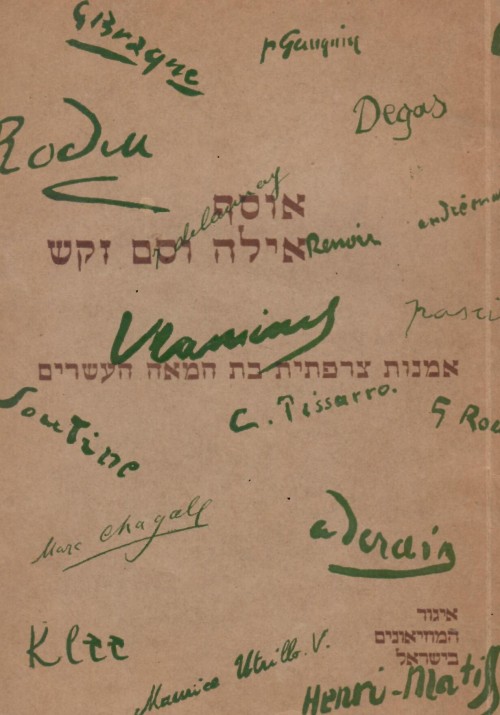 G Braque
p Gauguin
Degas
Rodin
אוסף
r. delaunay
אילה וסם זקש
Renoir
andré ma
Vlaminck
pasci
אמנות צרפתית בת המאה העשרים
C. Pissarro.
G Rou
Soutine
Marc Chagall
a Derain
איגוד
המוזיאונים
בישראל
Klee
Maurice Utrillo. V.
Henri-Matiss